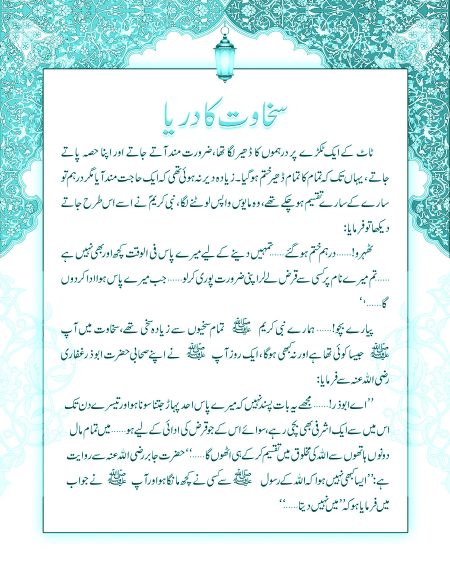 سخاوت کا دریا
ٹاٹ کے ایک ٹکڑے پر درہموں کا ڈھیر لگا تھا، ضرورت مند آتے جاتے اور اپنا حصہ پاتے
جاتے، یہاں تک کہ تمام کا تمام ڈھیر ختم ہو گیا۔ زیادہ دیر نہ ہوئی تھی کہ ایک حاجت مند آیا مگر درہم تو
سارے کے سارے تقسیم ہو چکے تھے، وہ مایوس واپس لوٹنے لگا، نبی کریمؐ نے اسے اس طرح جاتے
دیکھا تو فرمایا:
ٹھہرو!......درہم ختم ہو گئے......تمہیں دینے کے لیے میرے پاس فی الوقت کچھ اور بھی نہیں ہے
......تم میرے نام پر کسی سے قرض لے لو اپنی ضرورت پوری کر لو......جب میرے پاس ہوا ادا کردوں
گا......‘‘
پیارے بچو!......ہمارے نبی کریم ﷺ تمام سخیوں سے زیادہ سخی تھے، سخاوت میں آپ
ﷺ جیسا کوئی تھا ہے اور نہ کبھی ہوگا، ایک روز آپ ﷺ نے اپنے صحابی حضرت ابوذر غفاری
رضی اللہ عنہ سے فرمایا:
’’اے ابوذر!......مجھے یہ بات پسند نہیں کہ میرے پاس احد پہاڑ جتنا سونا ہو اور تیسرے دن تک
اس میں سے ایک اشرفی بھی بچی رہے، سوائے اس کے جو قرض کی ادائی کے لیے ہو......میں تمام مال
دونوں ہاتھوں سے اللہ کی مخلوق میں تقسیم کر کے ہی اٹھوں گا......‘‘حضرت جابر رضی اللہ عنہ سے روایت
ہے:’’ایسا کبھی نہیں ہوا کہ اللہ کے رسول ﷺ سے کسی نے کچھ مانگا ہو اور آپ ﷺ نے جواب
میں فرمایا ہو کہ ’’میں نہیں دیتا......‘‘